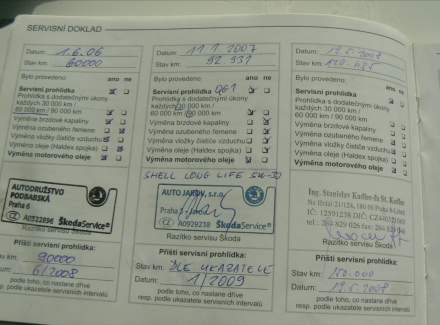 SERVISNÍ DOKLAD
Datum: 1.6.06
Stav km: 60000
Bylo provedeno: ano ne
Servisní prohlídka
Prohlídka s dodatečnými úkony
každých 30 000 km /
60 000 km / 90 000 km
Výměna brzdové kapaliny
Výměna ozubeného řemene
Výměna vložky čističe vzduchu
Výměna oleje (Haldex spojka)
Výměna motorového oleje
AUTODRUŽSTVO
PODBABSKÁ
Praha 6
ŠkodaService
Razítko servisu Škoda
Příští servisní prohlídka:
Stav km: 90000
Datum: 6/2008
podle toho, co nastane dříve
resp. podle ukazatele servisních intervalů
Datum: 11.1.2007
Stav km: 92.931
Bylo provedeno: ano ne
Servisní prohlídka
Prohlídka s dodatečnými úkony
každých 30 000 km /
60 000 km / 90 000 km
Výměna brzdové kapaliny
Výměna ozubeného řemene
Výměna vložky čističe vzduchu
Výměna oleje (Haldex spojka)
Výměna motorového oleje
SHELL LONG LIFE 5W-30
AUTO JAROV, s.r.o.
Praha
A0929238 ŠkodaService
Razítko servisu Škoda
Příští servisní prohlídka:
Stav km: DLE UKAZATELE
Datum: 1/2009
podle toho, co nastane dříve
resp. podle ukazatele servisních intervalů
Datum:
Stav km:
Bylo provedeno: ano ne
Servisní prohlídka
Prohlídka s dodatečnými úkony
každých 30 000 km /
60 000 km / 90 000 km
Výměna brzdové kapaliny
Výměna ozubeného řemene
Výměna vložky čističe vzduchu
Výměna oleje (Haldex spojka)
Výměna motorového oleje
Ing. Stanislav
Razítko servisu Škoda
Příští servisní prohlídka:
Stav km: 150.000
Datum:
podle toho, co nastane dříve
resp. podle ukazatele servisních intervalů